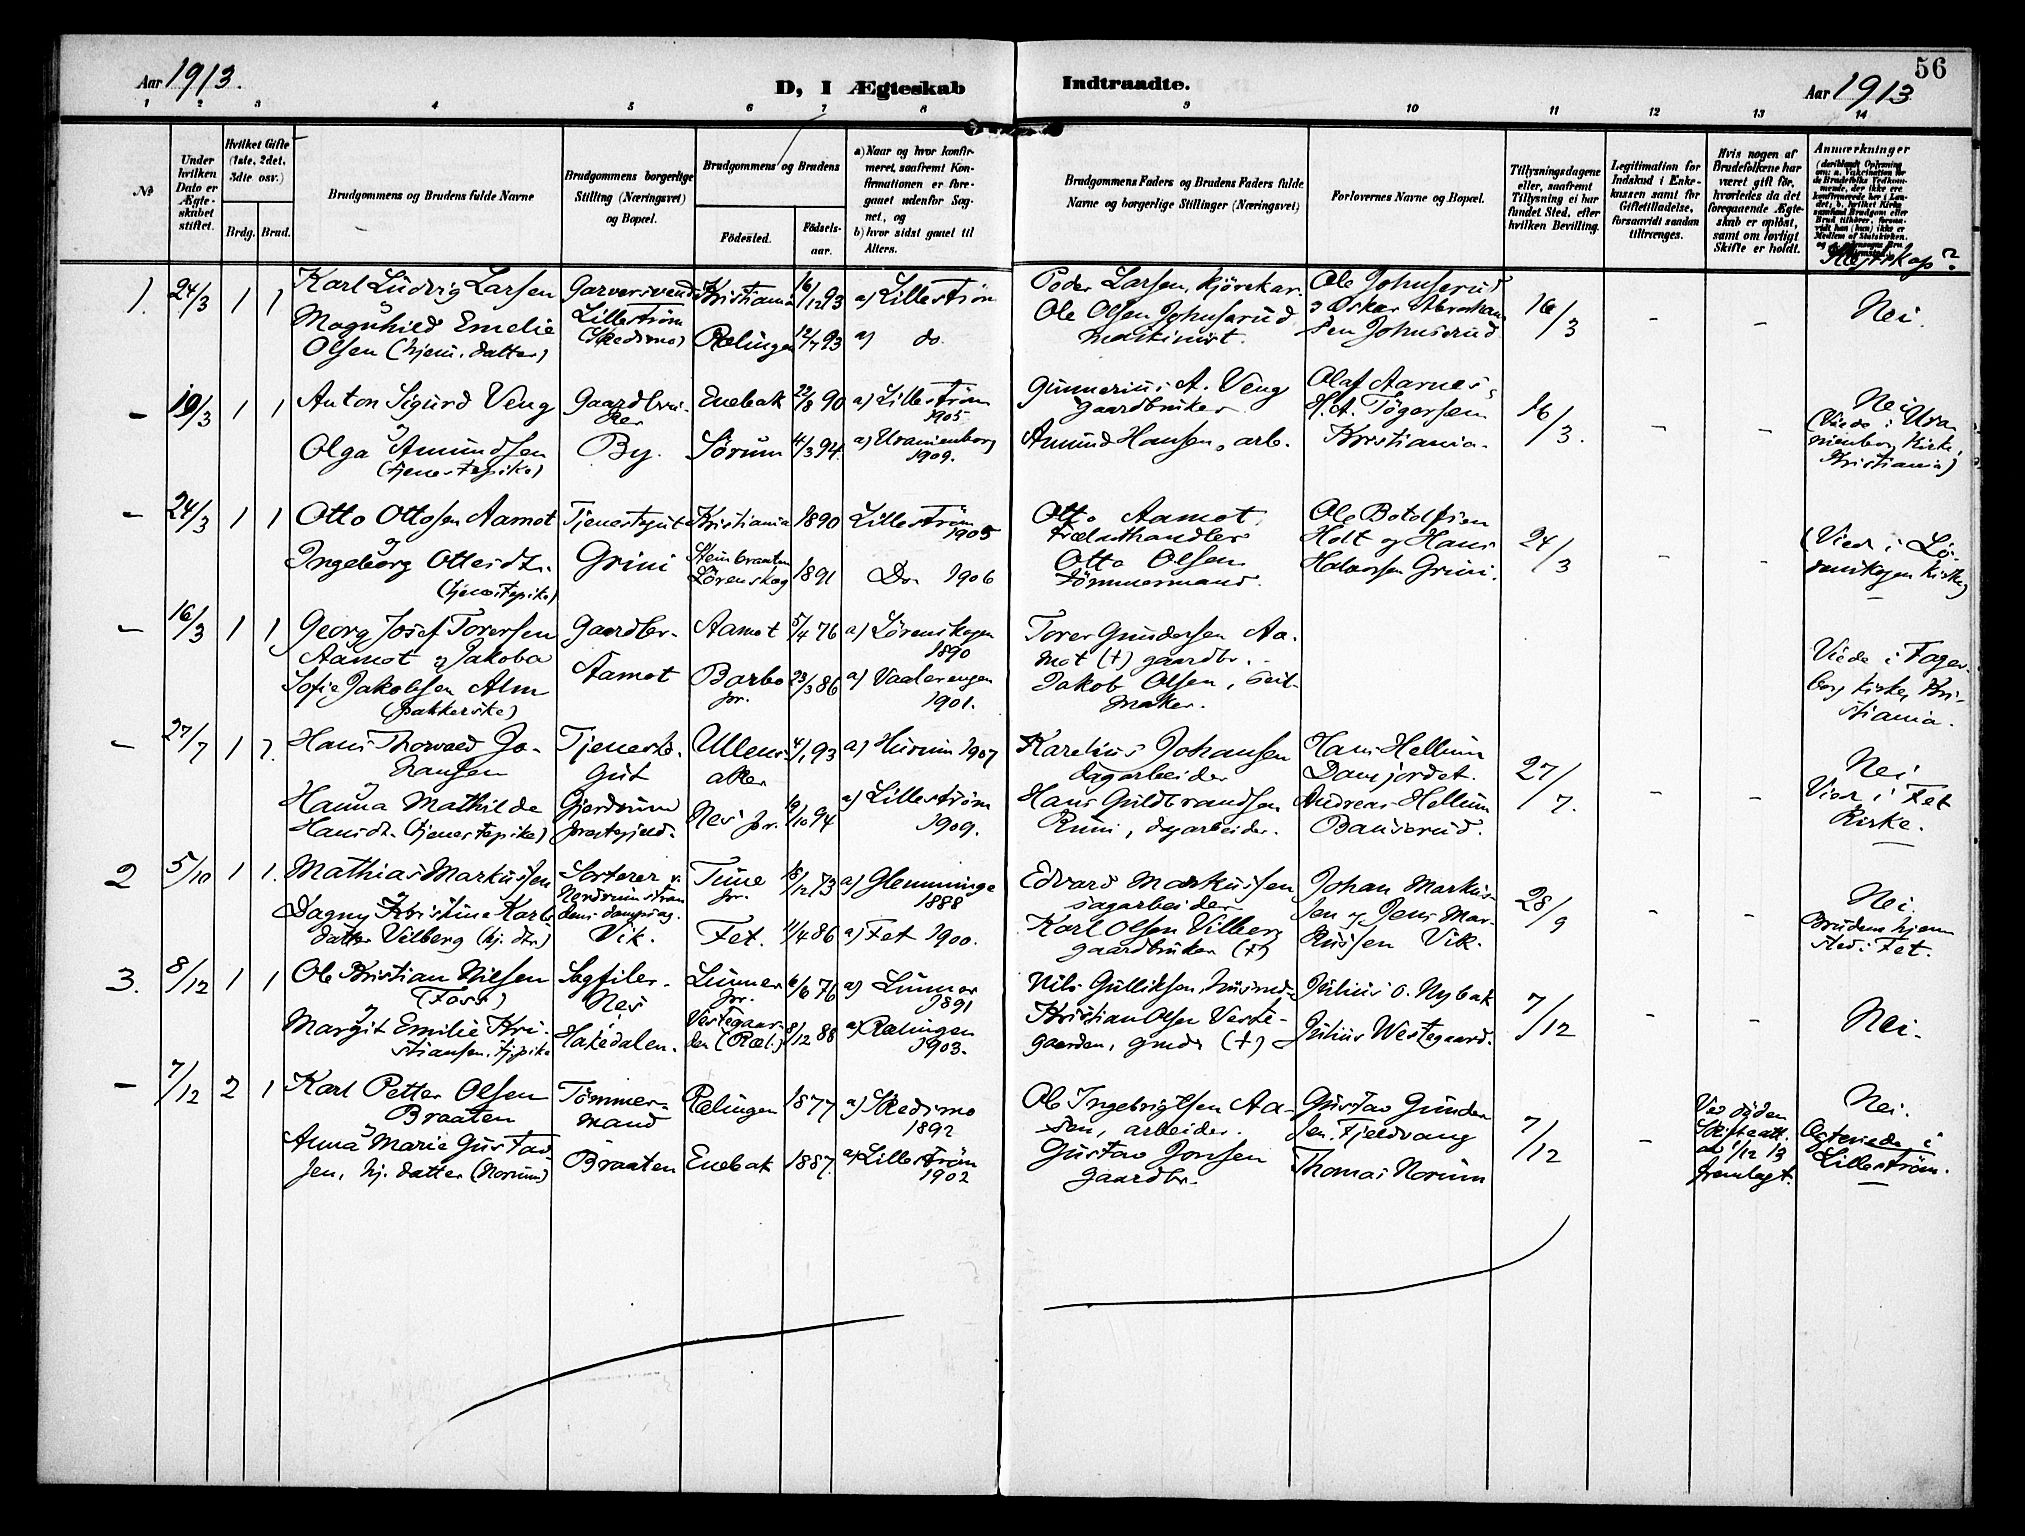 56
Aar 1913.
D, I Ægteskab
Indtraadte.
Aar 1913
1 2 3 4 5 6 7 8 9 10 11 12 13 14
№
Under hvilken Dato er Ægteskabet stiftet.
Hvilket Gifte (1ste, 2det, 3die osv.)
Brdg. Brud.
Brudgommens og Brudens fulde Navne
Brudgommens borgerlige Stilling (Næringsvei) og Bopæl.
Brudgommens og Brudens
Fødested.
Fødselsaar.
a) Naar og hvor konfirmeret, saafremt Konfirmationen er foregaaet udenfor Sognet, og
b) hvor sidst gaaet til Alters.
Brudgommens Faders og Brudens Faders fulde Navne og borgerlige Stillinger (Næringsvei)
Forlovernes Navne og Bopæl.
Tillysningsdagene eller, saafremt Tillysning ei har fundet Sted, efter hvilken Bevilling.
Legitimation for Indskud i Enkekassen samt for Giftetilladelse, forsaavidt saadan tiltrænges.
Hvis nogen af Brudefolkene har været gift før, hvorledes da det foregaaende Ægteskab er opløst, samt om lovligt Skifte er holdt.
Anmærkninger
Slegtskap?
1. 24/3 1 1 Karl Ludvig Larsen Garversvend Kristiania 16/12 93 a) Lillestrøm Peder Larsen, kjørekar. Ole Johnsrud 16/3 - - Nei.
Magnhild Emelie Lillestrøm Ole Olsen Johnsrud
Olsen (hjem. datter) (Skedsmo) Rælingen 12/7 93 a) do. maskinist. sen Johnsrud
- 19/3 1 1 Anton Sigurd Veng Gaardbru- Enebak 22/8 90 a) Lillestrøm Gunnerius A. Veng Olaf Aarnes 16/3. - - Nei
og ker 1905 gaardbruker H. A. Tøgersen (Viede i Ura
Olga Amundsen By. Sørum 4/3 94. a) Uranienborg Amund Hansen, arb. Kristiania. nienborg Kirke,
(tjenestepike) 1909. Kristiania)
- 24/3 1 1 Otto Ottosen Aamot Tjenestegut Kristiania 1890 Lillestrøm Otto Aamot, Ole Botolfsen 24/3 - - (Viede i Lø-
og 1905 trælasthandler Holt og Hans renskogen Kirke)
Ingeborg Ottesdtr. Grini Stenbraaten 1891 Do 1906 Otto Olsen Halvorsen Grini.
(tjenestepike) Lørenskog tømmermand.
- 16/3 1 1 Georg Josef Torersen Gaardbr. Aamot 5/4 76 a) Lørenskogen Torer Gundersen Aa-
Aamot og Jakoba 1890 mot (†) gaardbr. Viede i Fager-
Sofie Jakobsen Alm Aamot Barbo 23/3 86 a) Vaalerengen Jakob Olsen, seil- borg kirke, Kri-
(pakkerske) pr. 1901. maker. stiania.
- 27/7 1 1. Hans Thorvald Jo- Tjeneste- Ullens- 4/1 93 a) Hurum 1907 Karelius Johansen Hans Hellum 27/7. - - Nei
hansen gut aker dagarbeider Damjordet. Viede i Fet
Hanna Mathilde Gjerdrum Nes pr. 19/10 94 a) Lillestrøm Hans Guldbrandsen Andreas Hellum Kirke.
Hansdtr. (tjenestepike) prestegjeld. 1909. Runi, dagarbeider. Bauserud.
2 5/10 1 1. Mathias Markussen Sorterer v. Tune 18/12 73 a) Glemminge Edvard Markussen Johan Markus- 28/9 - - Nei.
og pr. 1888 sagarbeider sen og Jens Mar- Brudens hjem
Dagny Kristine Karls dens dampsag. Karl Olsen Vilberg kussen Vik. sted: Fet.
datter Vilberg (hj. dtr.) Vik. Fet. 11/4 86 a) Fet 1900. gaardbruker (†)
3. 8/12 1 1 Ole Kristian Nilsen Sagfiler. Lunner 6/6 76 a) Lunner Nils Gulliksen, husmd. Julius O. Nybak 7/12 - - Nei.
(Foss) Nes pr. 1891 Kristian Olsen Veste-
Margit Emilie Kri- Hakedalen. Vestegaar- 8/12 88 a) Rælingen gaarden, grndr (†) Julius Westegaard.
stiansen, tj.pike den (Ræl.) 1903.
- 7/12 2 1 Karl Petter Olsen Tømmer- Rælingen 1877 a) Skedsmo Ole Ingebrigtsen Aa- Gustav Gunder 7/12 - Ved døden Nei.
Braaten mand 1892 sen, arbeider. sen, Fjeldvang Skifteatt. Egteviede i
Anna Marie Gustav Braaten Enebak 1887. a) Lillestrøm Gustav Jonsen Thomas Norum av 1/12 13 Lillestrøm.
sen, hj. datter (Norum) 1902 gaardbr. fremlagt.